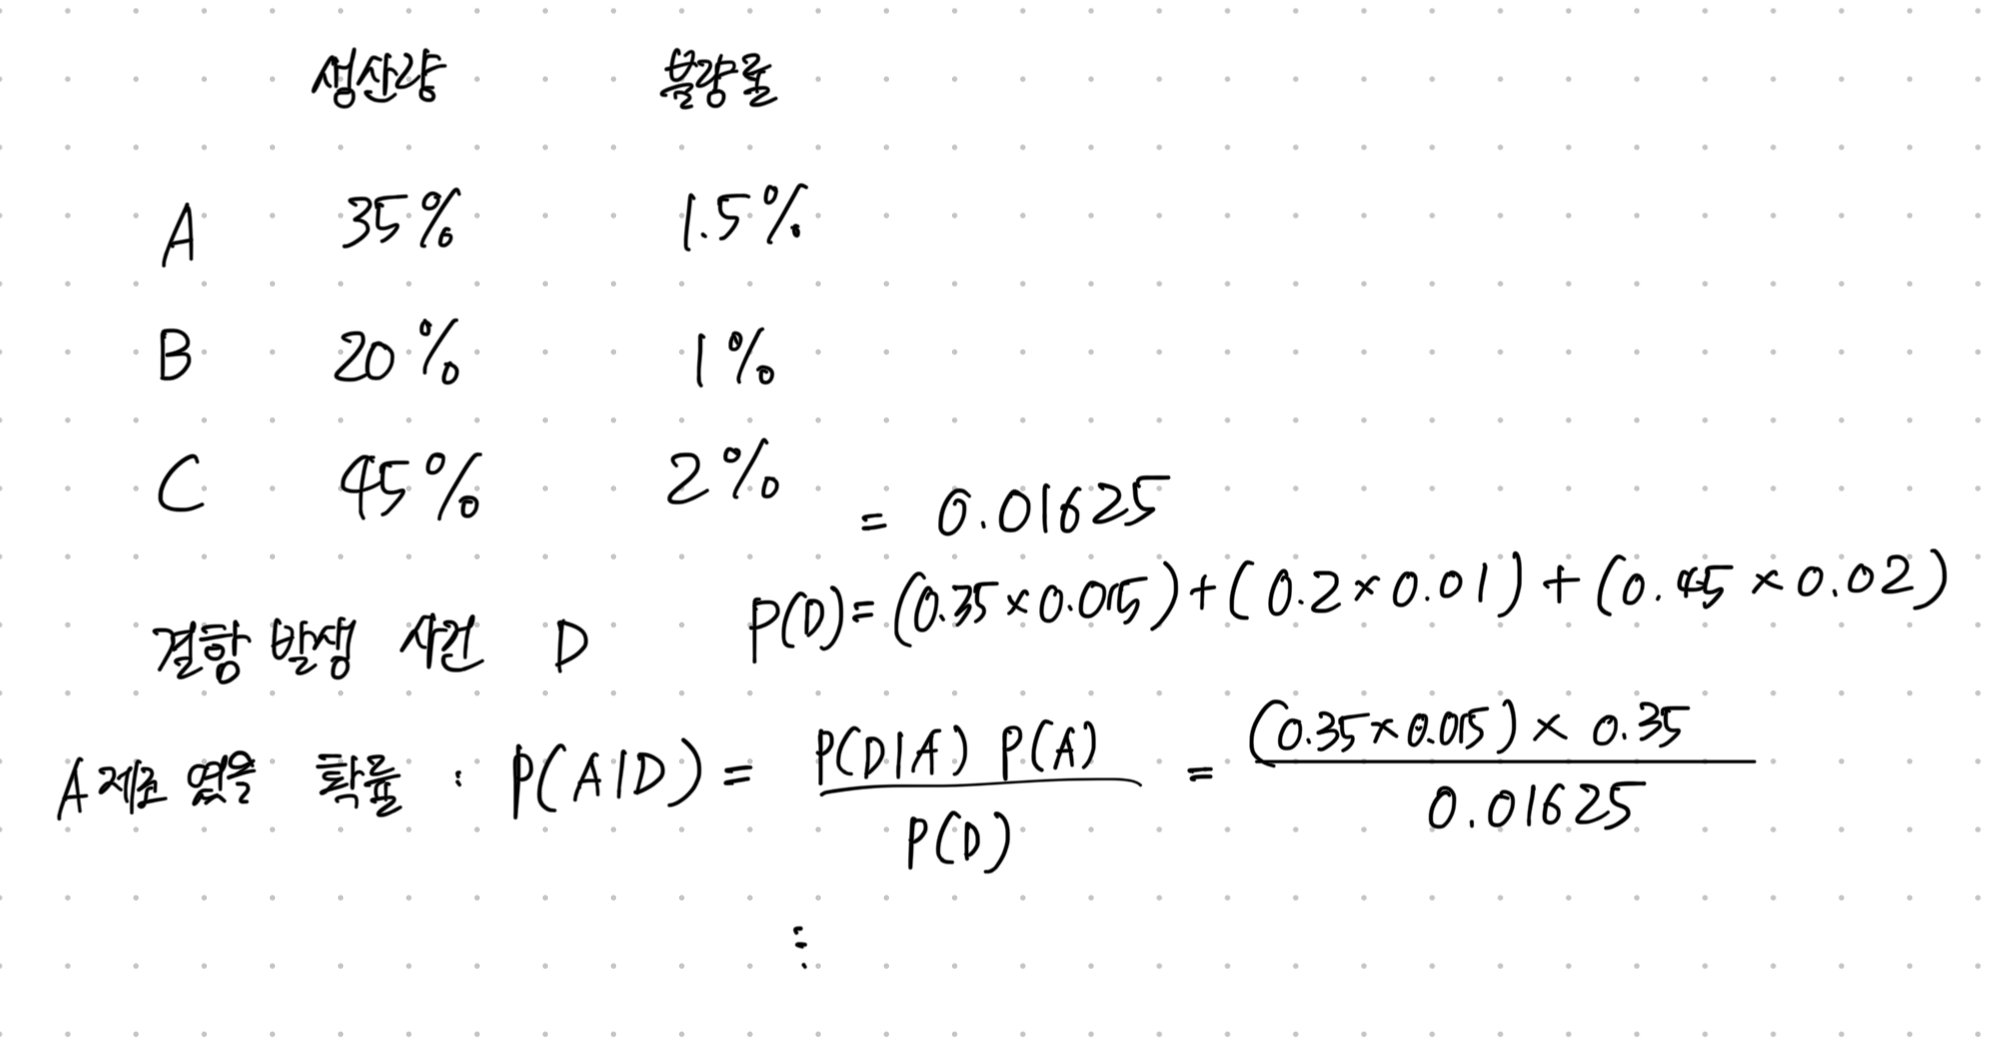 생산량 불량률
A 35% 1.5%
B 20% 1%
C 45% 2%
= 0.01625
결함 발생 사건 D P(D) = (0.35 × 0.015) + (0.2 × 0.01) + (0.45 × 0.02)
A 제조 였을 확률 : P(A|D) = P(D|A) P(A) / P(D) = (0.35 × 0.015) × 0.35 / 0.01625